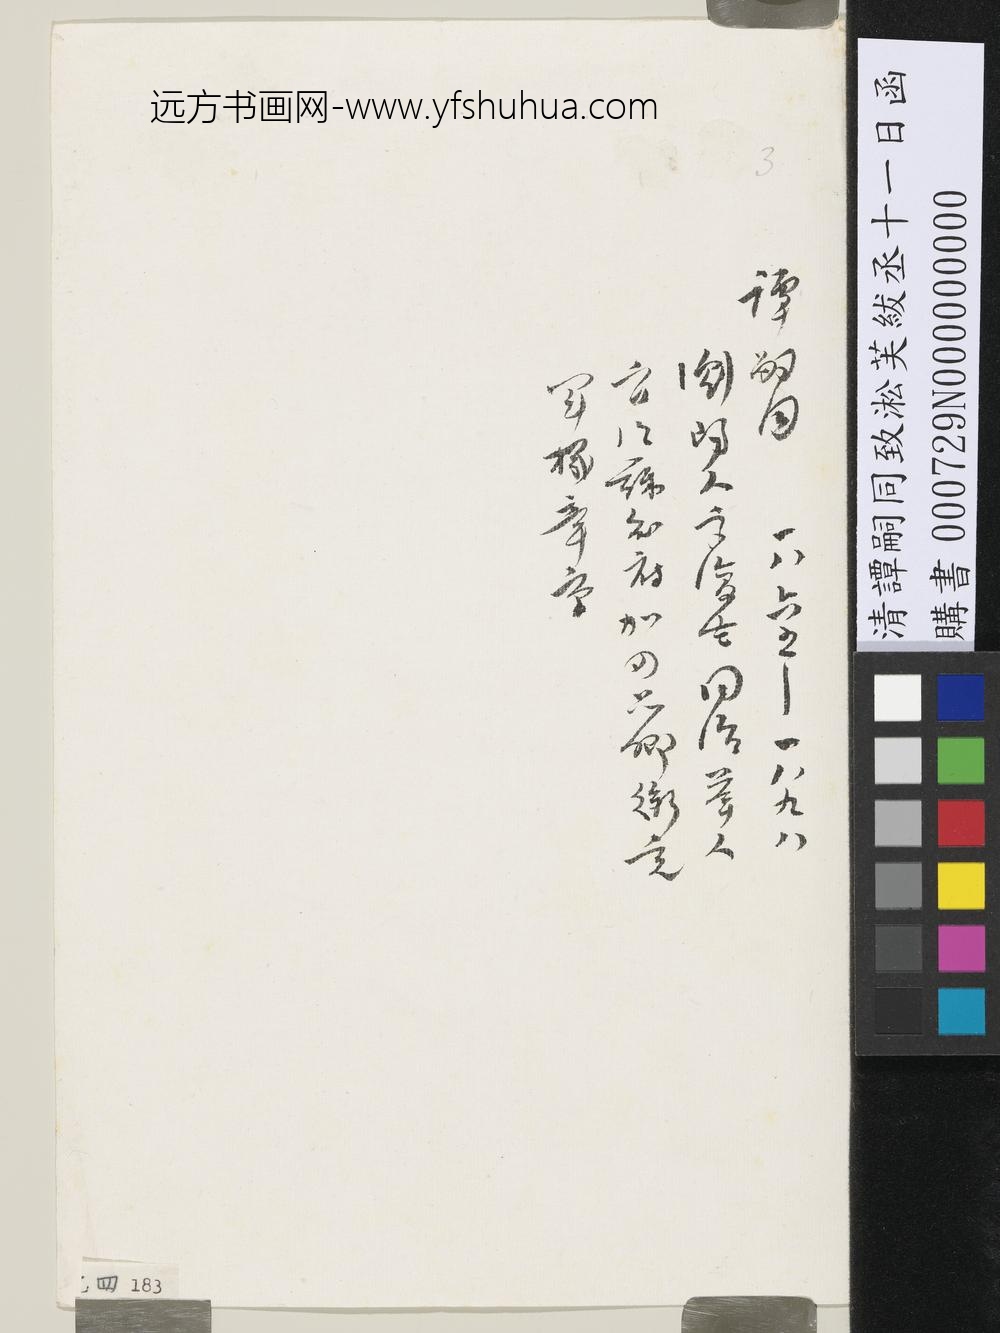 远方书画网-www.yfshuhua.com
3
清譚嗣同致淞芙紱丞十一日函
購書 000729N000000000
譚嗣同 一八六五—一八九八
瀏陽人字復生同治舉人
官江蘇知府加四品卿銜充
軍機章京
四 183